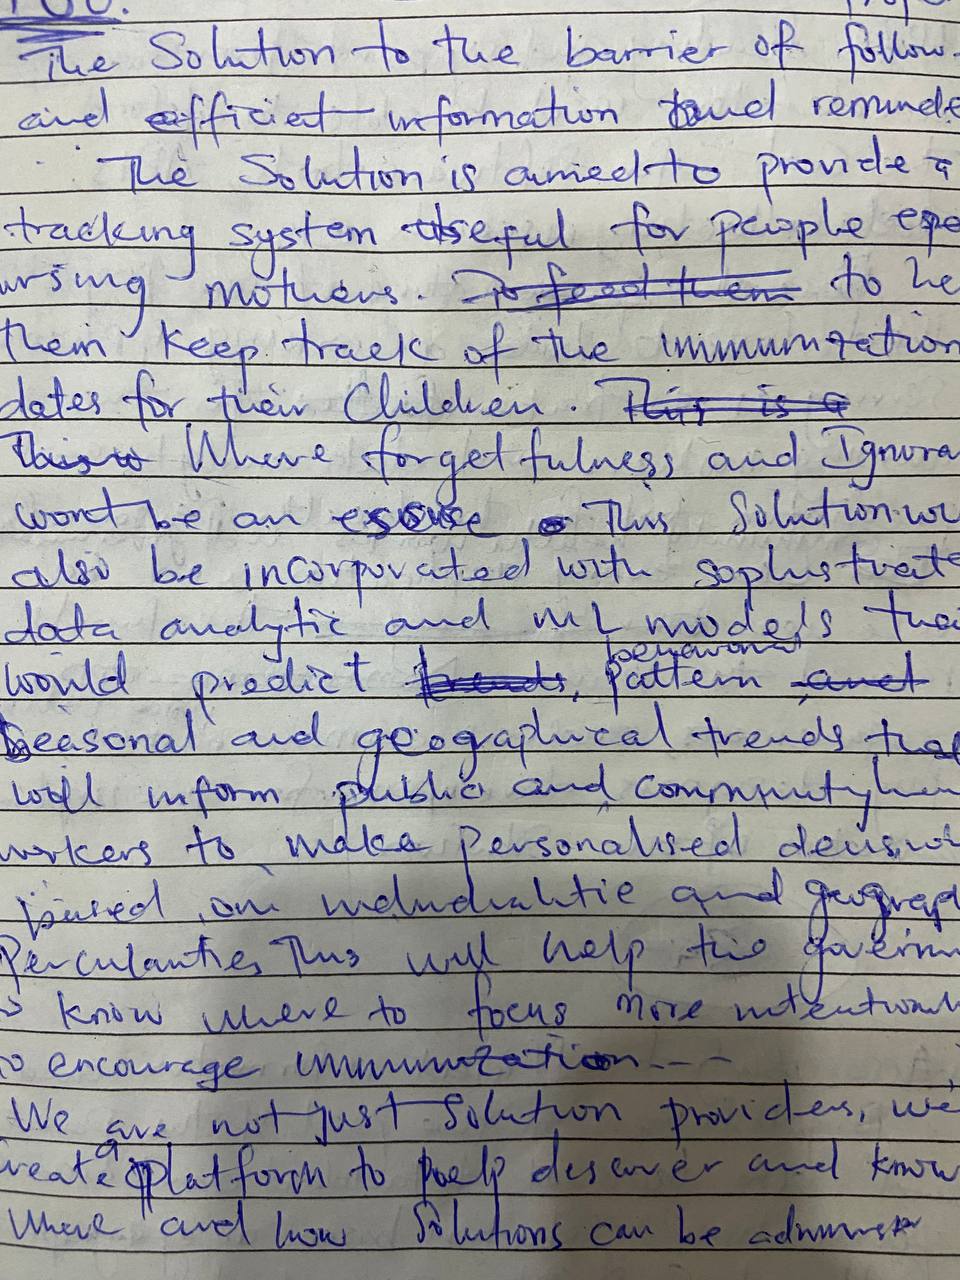 The Solution to the barrier of follow-
and efficient information and reminde
The Solution is aimed to provide a
tracking system useful for people espe
ursing mothers. To feed them to he
them keep track of the immunization
dates for their Children. This is a
This is Where forgetfulness and Ignora
wont be an excuse This Solution wi
also be incorporated with sophisticate
data analytic and ML models tha
behavioral
would predict trends, Pattern and
Seasonal and geographical trends that
will inform public and community hea
workers to make Personalised decision
based on individualitie and geograp
Perculiarities This will help the governm
o know where to focus more intentionall
to encourage immunization---
We are not just Solution providers, we
reate a platform to help discover and know
Where and how Solutions can be adminst